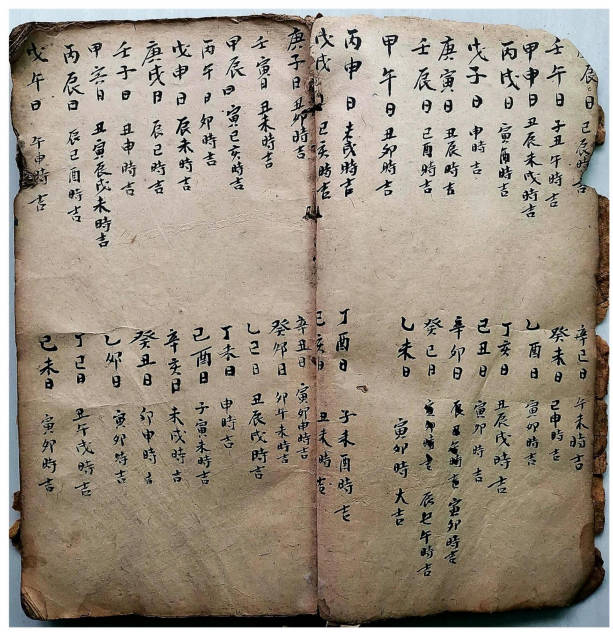 辰日 己辰時吉
辛巳日 午未時吉
壬午日 子丑午時吉
癸未日 己申時吉
甲申日 丑辰未戌時吉
乙酉日 寅卯時吉
丙戌日 寅酉時吉
丁亥日 丑辰戌時吉
戊子日 申時吉
己丑日 寅卯時吉
庚寅日 丑辰時吉
辛卯日 寅卯時吉
壬辰日 己酉時吉
癸巳日 辰巳午時吉
甲午日 丑卯時吉
乙未日 寅卯時大吉
丙申日 未戌時吉
丁酉日 子未酉時吉
戊戌 己亥時吉
己亥日 丑未時吉
庚子日 丑卯時吉
辛丑日 寅卯申時吉
壬寅日 丑未時吉
癸卯日 卯午未時吉
甲辰日 寅己亥時吉
乙巳日 丑辰戌時吉
丙午日 卯時吉
丁未日 申時吉
戊申日 辰未時吉
己酉日 子寅未時吉
庚戌日 辰己時吉
辛亥日 未戌時吉
壬子日 丑申時吉
癸丑日 卯申時吉
甲寅日 丑寅辰戌未時吉
乙卯日 寅卯時吉
丙辰日 辰己酉時吉
丁巳日 丑午戌時吉
戊午日 午申時吉
己未日 寅卯時吉